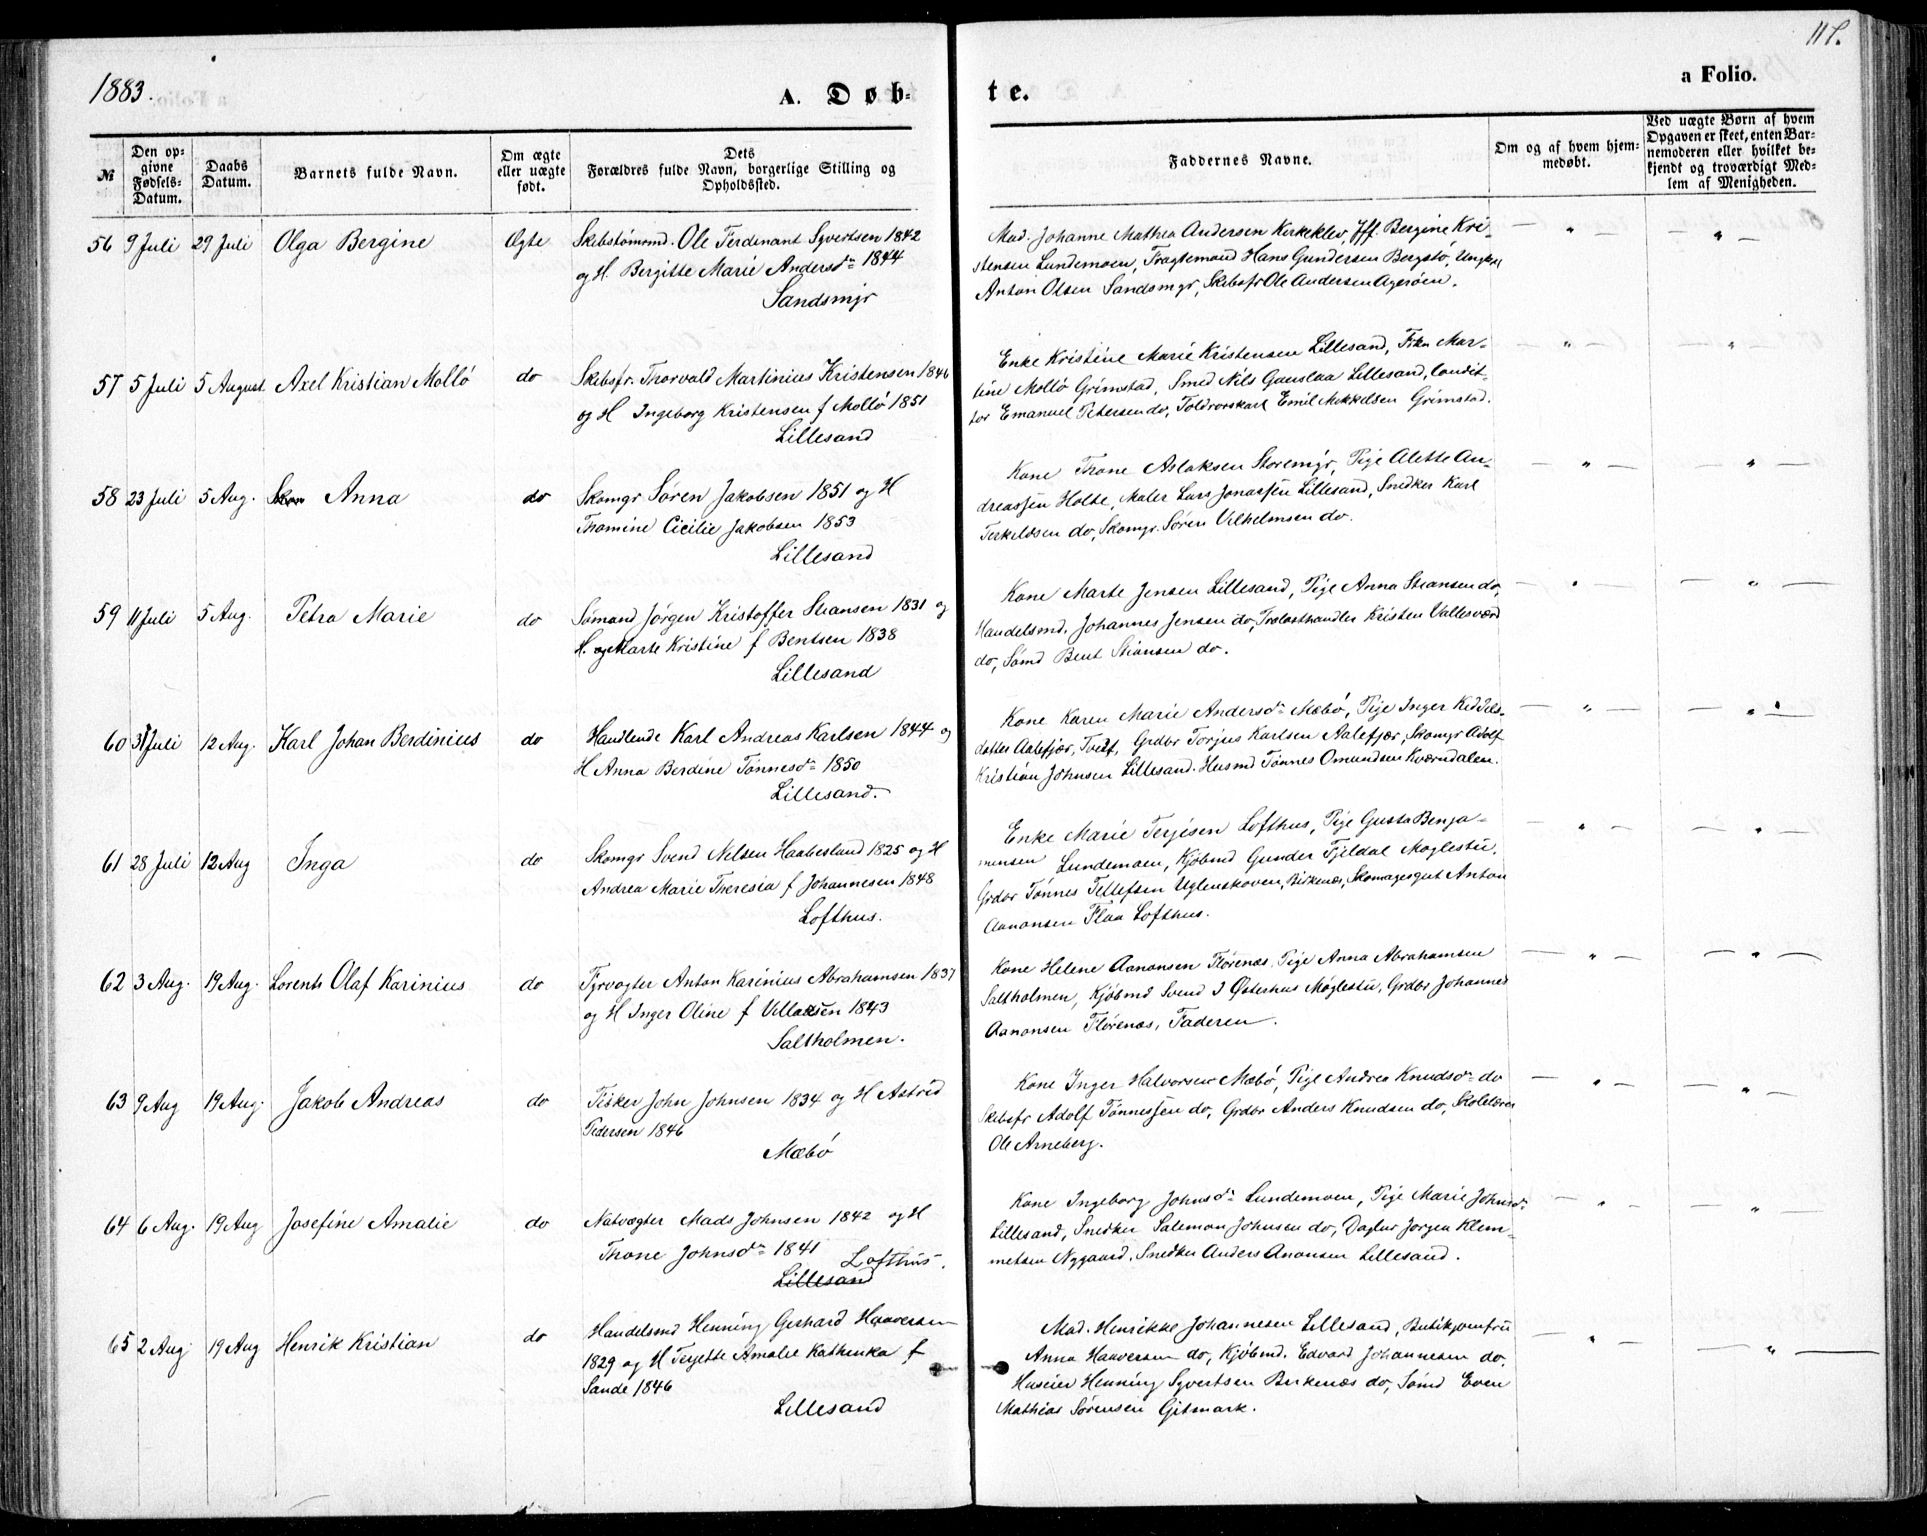 1883.
A. Døb-
te.
a Folio.
117.
№
Den op-
givne
Fødsels-
Datum.
Daabs
Datum.
Barnets fulde Navn.
Om ægte
eller uægte
født.
Dets
Forældres fulde Navn, borgerlige Stilling og
Opholdssted.
Faddernes Navne.
Om og af hvem hjem-
medøbt.
Ved uægte Børn af hvem
Opgaven er skeet, enten Bar-
nemoderen eller hvilket be-
kjendt og troværdigt Med-
lem af Menigheden.
56 9 Juli 29 Juli Olga Bergine Ægte
Skibstømmd. Ole Ferdinant Syvertsen 1842
og H. Bergitte Marie Andersdr 1844
Sandsmyr
Mad. Johanne Mathea Andersen Kirkeklev, Jfr. Bergine Kri-
stensen Lundemoen, Fragtemand Hans Gundersen Bergstø, Ungkl
Anton Olsen Sandsmyr, Skibsfr Ole Andersen Agerøen.
57 5 Juli 5 August. Axel Kristian Molló do
Skibsfr. Thorvald Martinius Kristensen 1846
og H Ingeborg Kristensen f Molló 1851
Lillesand
Enke Kristine Marie Kristensen Lillesand, Frkn Mar-
tine Molló Grimstad, Smed Nils Gauslaa Lillesand, Condit-
tor Emanuel Petersen do, Toldrorskarl Emil Mikkelsen Grimstad.
58 23 Juli 5 Aug. Anna do
Skomgr Søren Jakobsen 1851 og H
Thomine Cicilie Jakobsen 1853
Lillesand
Kone Thone Aslaksen Storemyr, Pige Alette An-
dreassen Holte, Maler Lars Jonassen Lillesand, Snedker Karl
Terkildsen do, Skomgr. Søren Vilhelmsen do.
59 11 Juli 5 Aug. Petra Marie do
Sømand Jørgen Kristoffer Stiansen 1831 og
H. og Marte Kristine f Bentsen 1838
Lillesand
Kone Marte Jensen Lillesand, Pige Anna Stiansen do,
Handelsmd. Johannes Jensen do, Trælasthandler Kristen Vallesværd
do, Sømd Bent Stiansen do.
60 31 Juli 12 Aug. Karl Johan Berdinius do
Handlende Karl Andreas Karlsen 1844 og
H Anna Berdine Tønnesdr 1850
Lillesand.
Kone Karen Marie Andersdr Mæbø, Pige Inger Kiddels-
datter Aalefjær, Tveit, Grdbr Torjus Karlsen Aalefjær, Skomgr Adolf
Kristian Johnsen Lillesand. Husmd Tønnes Omundsen Kværndalen.
61 28 Juli 12 Aug Inga do
Skomgr Svend Nilsen Haabesland 1825 og H
Andrea Marie Theresia f Johannesen 1848
Lofthus.
Enke Marie Terjesen Lofthus, Pige Gusta Benja-
mensen Lundemoen, Kjøbmd Gunder Fjeldal Moglestu.
Grdbr Tønnes Tellefsen Uglenskoven, Birkenæs, Skomagergut Anton
Aanonsen Flaa Lofthus.
62 3 Aug. 19 Aug. Lorents Olaf Karinius do
Fyrvogter Anton Karinius Abrahamsen 1837
og H Inger Oline f Villadsen 1843
Saltholmen.
Kone Helene Aanonsen Florenæs, Pige Anna Abrahamsen
Saltholmen, Kjøbmd Svend J Østerhus Møglestu, Grdbr Johannes
Aanonsen Florenæs, Faderen.
63 9 Aug 19 Aug. Jakob Andreas do
Fisker John Johnsen 1834 og H Astrid
Pedersen 1846
Mæbø
Kone Inger Halvorsen Mæbø, Pige Andrea Knudsdr do
Skibsfr Adolf Tønnessen do, Grdbr Anders Knudsen do, Skolelærer
Ole Arneberg.
64 6 Aug. 19 Aug Josefine Amalie do
Natvægter Mads Johnsen 1842 og H
Thone Johnsdr 1841
Lofthus.
Lillesand
Kone Ingeborg Johnsdr Lundemoen, Pige Marie Johnsdr
Lillesand, Snedker Salemon Johnsen do, Daglnr Jørgen Klem-
metsen Nygaard. Snedker Anders Anonsen Lillesand.
65 2 Aug 19 Aug Henrik Kristian do
Handelsmd Henning Gerhard Haaversen
1829 og H Terjette Amalie Kathinka f
Sande 1846
Lillesand
Mad. Henrikke Johannesen Lillesand, Butikjomfru
Anna Haaversen do, Kjøbmd. Edvard Johannesen do.
Huseier Henning Syvertsen Birkenæs do, Sømd Even
Mathias Sørensen Gitmark.